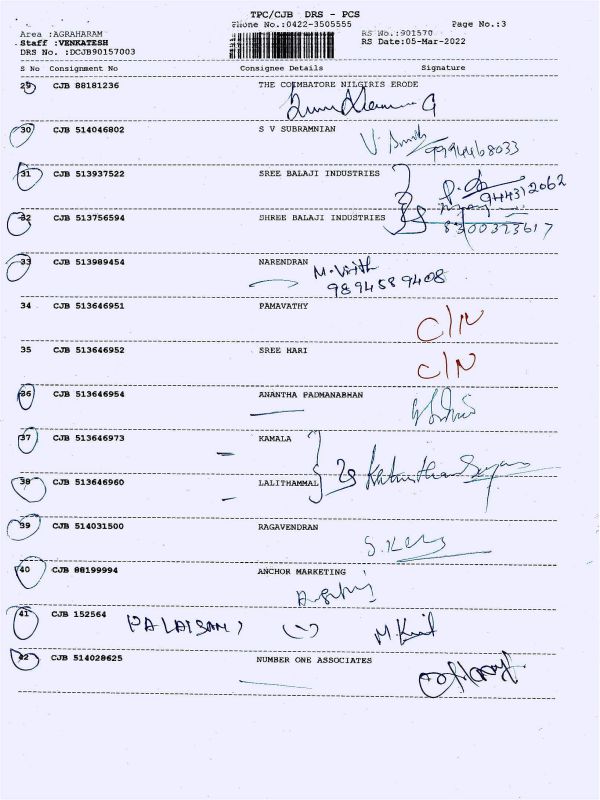 TPC/CJB DRS - PCS
Phone No.:0422-3505555 Page No.:3
Area :AGRAHARAM RS No.:901570
Staff :VENKATESH RS Date:05-Mar-2022
DRS No. :DCJB90157003
S No Consignment No Consignee Details Signature
29 CJB 88181236 THE COIMBATORE NILGIRIS ERODE
30 CJB 514046802 S V SUBRAMNIAN
9994468033
31 CJB 513937522 SREE BALAJI INDUSTRIES
944312062
32 CJB 513756594 SHREE BALAJI INDUSTRIES
8300323617
33 CJB 513989454 NARENDRAN
9894589408
34 CJB 513646951 PAMAVATHY C/N
35 CJB 513646952 SREE HARI C/N
36 CJB 513646954 ANANTHA PADMANABHAN
37 CJB 513646973 KAMALA
38 CJB 513646960 LALITHAMMAL
39 CJB 514031500 RAGAVENDRAN
40 CJB 88199994 ANCHOR MARKETING
41 CJB 152564
42 CJB 514028625 NUMBER ONE ASSOCIATES